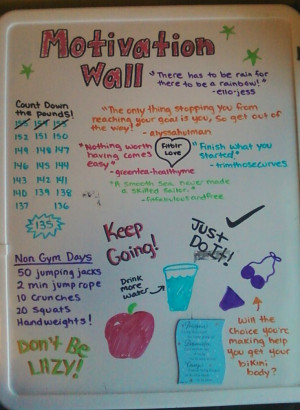 Motivation
Wall
"There has to be rain for
there to be a rainbow!"
-ello-jess
Count Down
the pounds!
155 154 153
152 151 150
149 148 147
146 145 144
143 142 141
140 139 138
137 136
135
"The only thing stopping you from
reaching your goal is you, so get out of
the way!" - alyssahulman
"Nothing worth
having comes
easy"
- greentea-healthyme
Fitblr
Love
"Finish what you
started"
- trimthosecurves
"A smooth sea never made
a skilled sailor."
- finfabulousandfree
Keep
Going!
JUST
DO IT!
Non Gym Days
50 jumping jacks
2 min jump rope
10 Crunches
20 Squats
Handweights!
Drink
more
water
Don't Be
LAZY!
Will the
choice you're
making help
you get your
bikini
body?